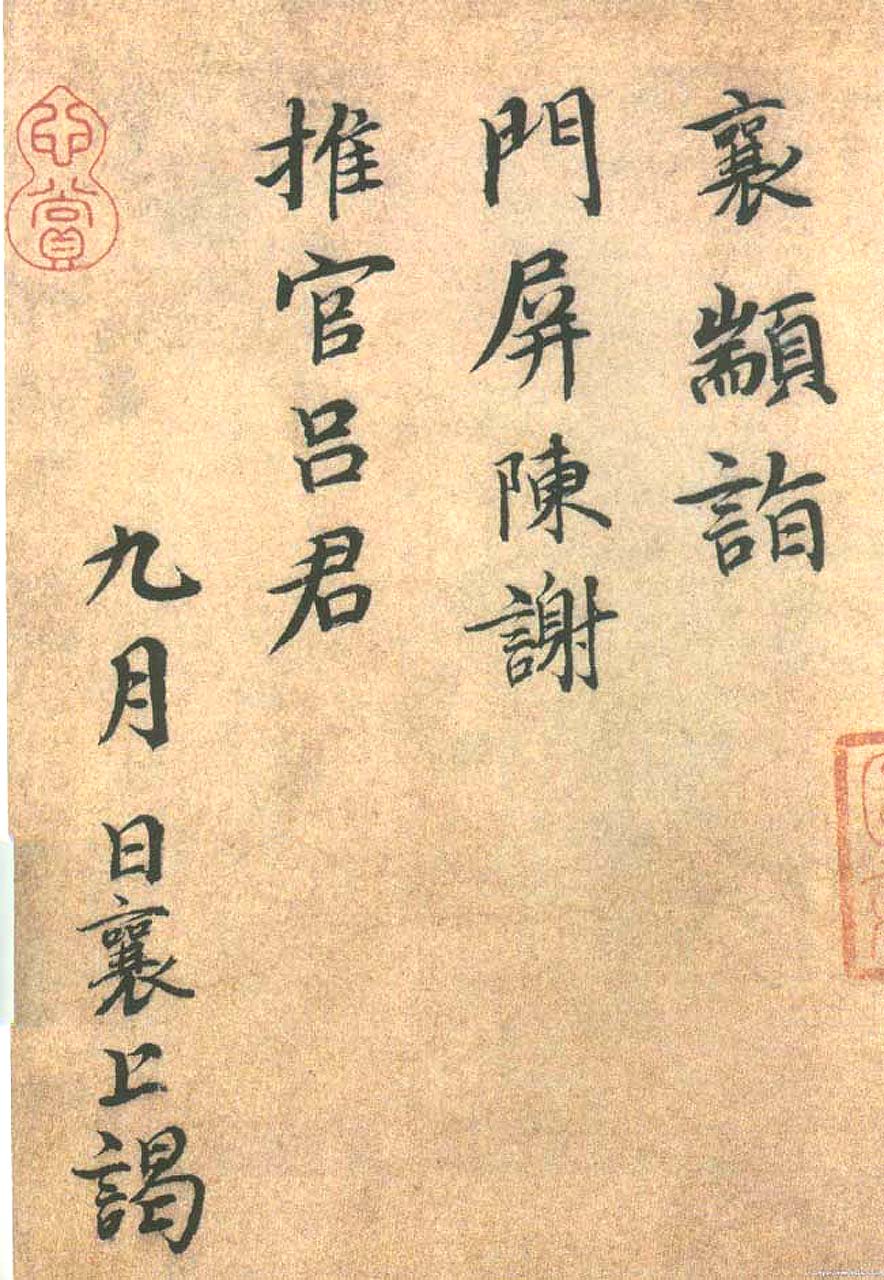 襄顓詣
門屏陳謝
推官呂君
九月日襄上謁